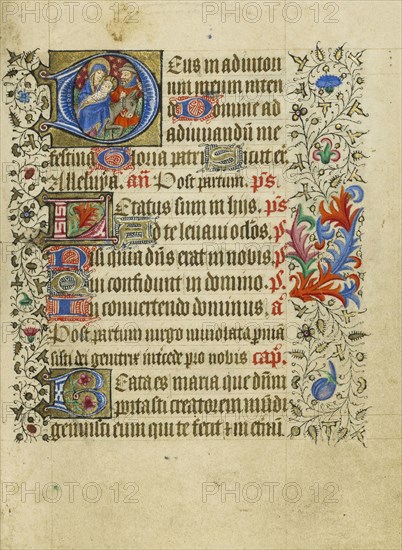 Deus in adiutori
um meum inten
de Domine ad
adiuuandum me
festina Gloria patri Sicut er.
Alleluya. añ Post partum. ps
Letatus sum in hijs. ps
Ad te leuaui oclos. p
Nisi quia dñs erat in nobis. p
Qui confidunt in domino. p
In conuertendo dominus, a
Post partum uirgo inuiolata pman
sisti dei genitrix intcede pro nobis cap.
Beata es maria que dñm
portasti creatorem mũdi
genuisti eum qui te fecit
PHOTO 12